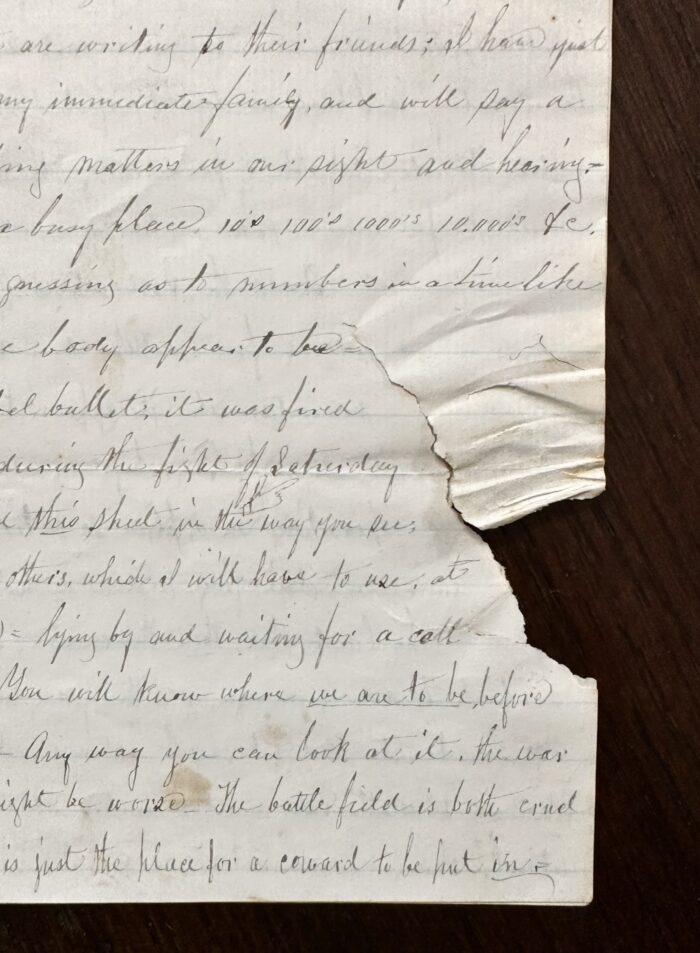 are writing to their friends; I have just
my immediate family, and will say a
ing matters in our sight and hearing=
a busy place. 10's 100's 1000's 10.000's &c.
guessing as to numbers in a time like
e body appear to be=
bel bullet; it was fired
during the fight of Saturday
this sheet in the way you see;
others, which I will have to use, at
)= lying by and waiting for a call
You will know where we are to be, before
- Any way you can look at it, the war
ight be worse_ The battle field is both cruel
is just the place for a coward to be put in=